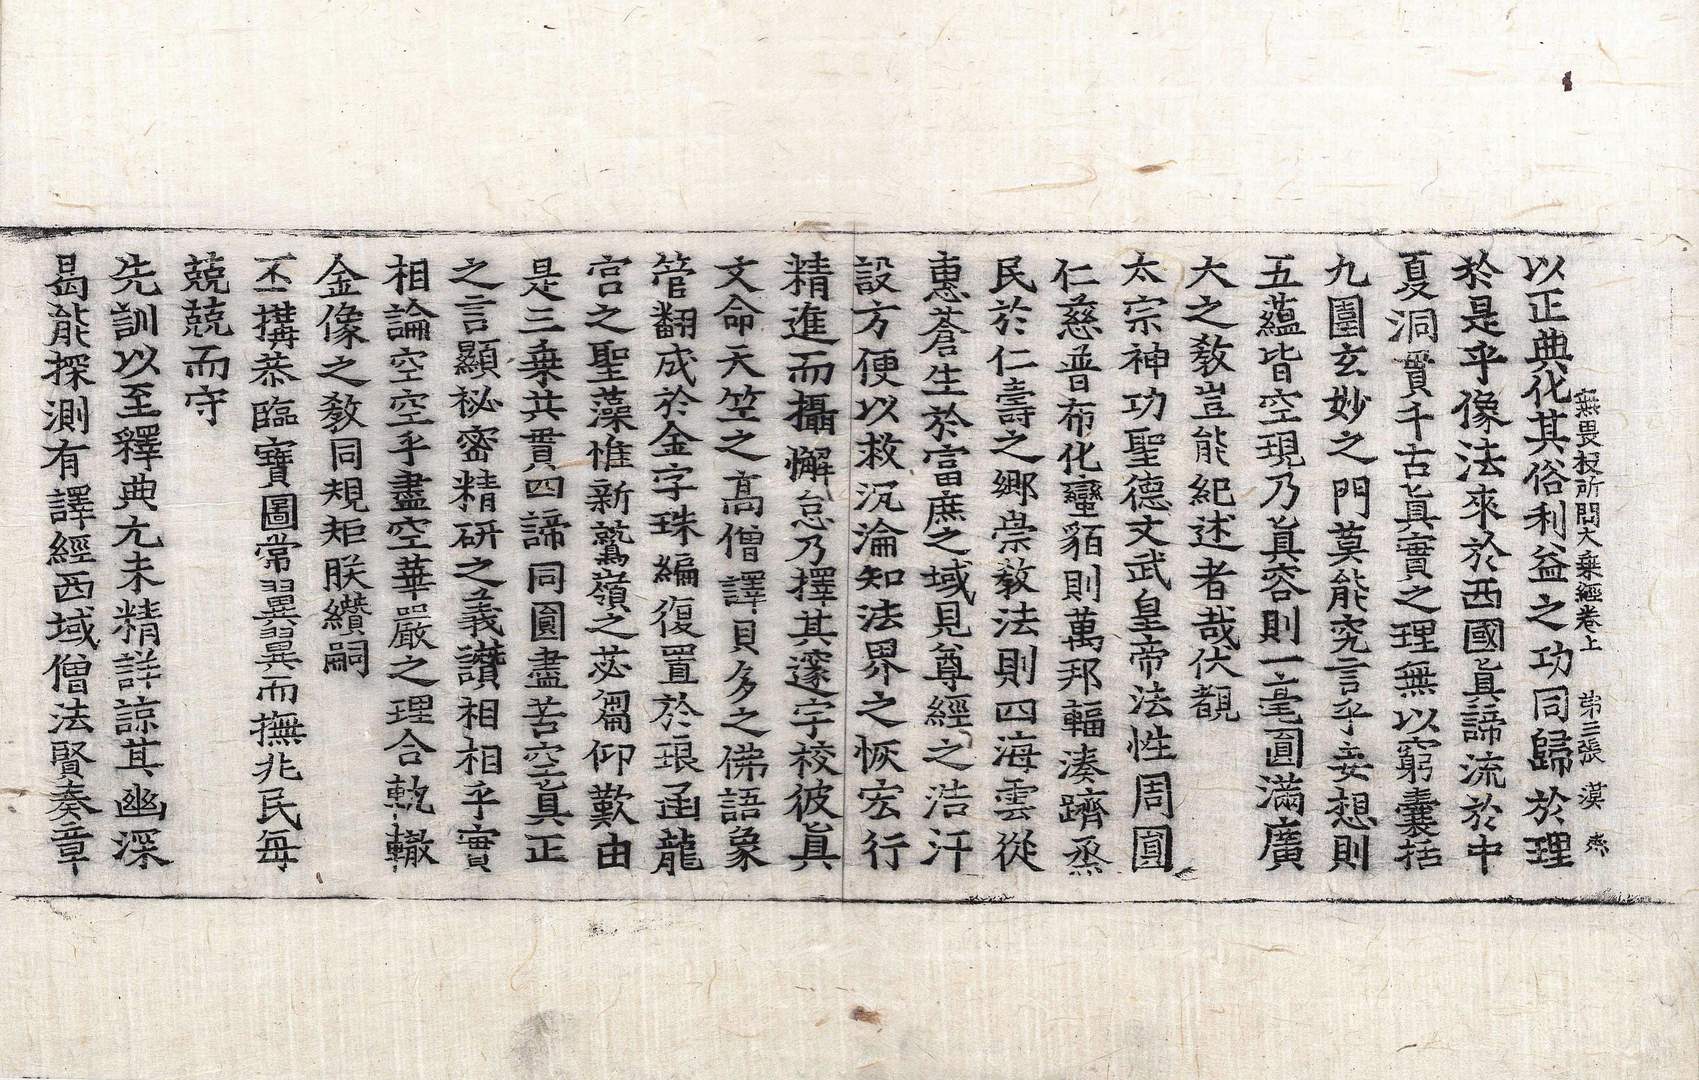 無畏授所問大乘經卷上 第三張 漠
以正典化其俗利益之功同歸於理
於是乎像法來於西國眞諦流於中
夏洞實千古眞實之理無以窮囊括
九圍玄妙之門莫能究言乎妄想則
五蘊皆空現乃眞容則一毫圓滿廣
大之敎豈能紀述者哉伏覩
太宗神功聖德文武皇帝法性周圓
仁慈普布化蠻貊則萬邦輻湊躋烝
民於仁壽之鄕崇敎法則四海雲從
惠蒼生於富庶之域見尊經之浩汗
設方便以救沉淪知法界之恢宏行
精進而攝懈怠乃擇其邃宇校彼眞
文命天竺之高僧譯貝多之佛語象
管翻成於金字珠編復置於琅函龍
宮之聖藻惟新鷲嶺之苾蒭仰歎由
是三乘共貫四諦同圓盡苦空眞正
之言顯祕密精研之義讚相相乎實
相論空空乎盡空華嚴之理合軌轍
金像之敎同規矩朕纘嗣
丕搆恭臨寶圖常翼翼而撫兆民每
兢兢而守
先訓以至釋典尤未精詳諒其幽深
曷能探測有譯經西域僧法賢奏章